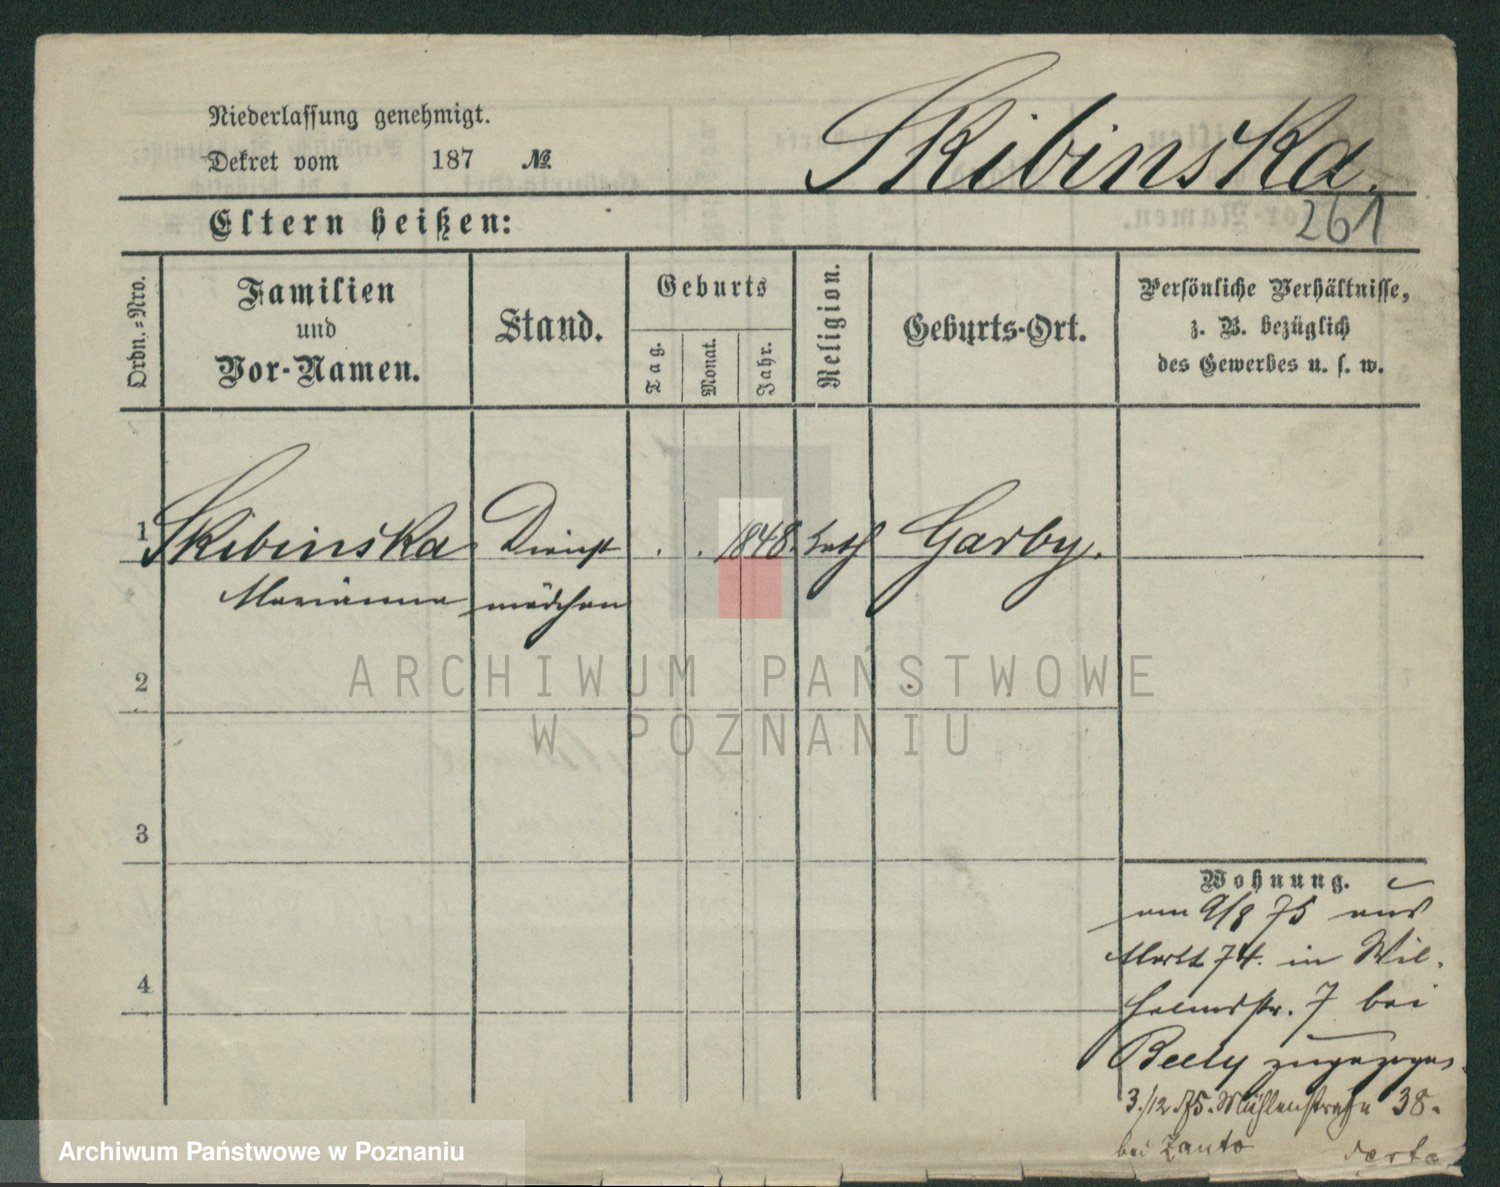 Niederlassung genehmigt.
Dekret vom 187 №
Skibinska.
261
Eltern heißen:
Ordn.=Nro.
Familien
und
Vor-Namen.
Stand.
Geburts
Tag.
Monat.
Jahr.
Religion.
Geburts-Ort.
Persönliche Verhältnisse,
z. B. bezüglich
des Gewerbes u. s. w.
1 Skibinska Dienst . . 1848. kath Garby.
Marianna mädchen
ARCHIWUM PAŃSTWOWE
W POZNANIU
2
3
4
Wohnung.
am 9/8 75 aus
Markt 74. in Wil-
helmstr. 7 bei
Beely zugezogen
3./12.75. Mühlenstraße 38.
bei
Archiwum Państwowe w Poznaniu